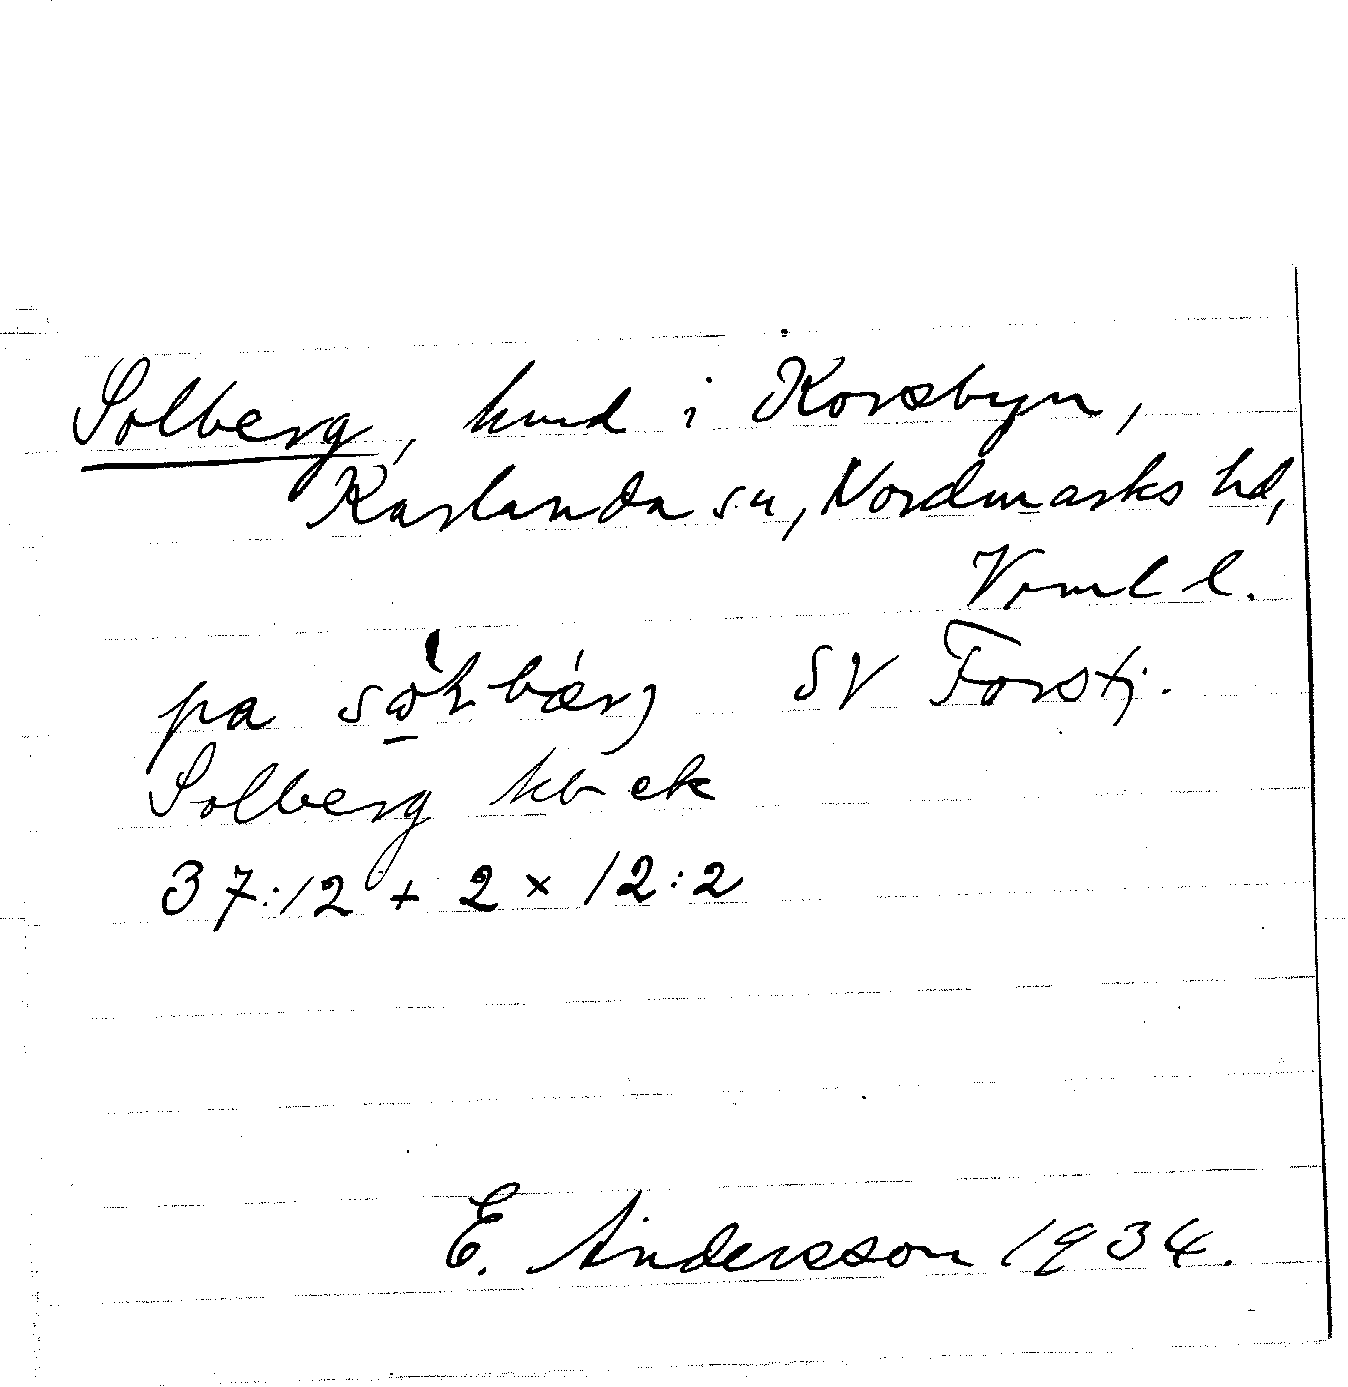 Solberg, hmd i Korsbyn,
Karlanda sn, Nordmarks hd,
Vrml l.
pa bærj SV Forstj.
Solberg kb ek
37:12 + 2 x 12:2
E. Andersson 1934.